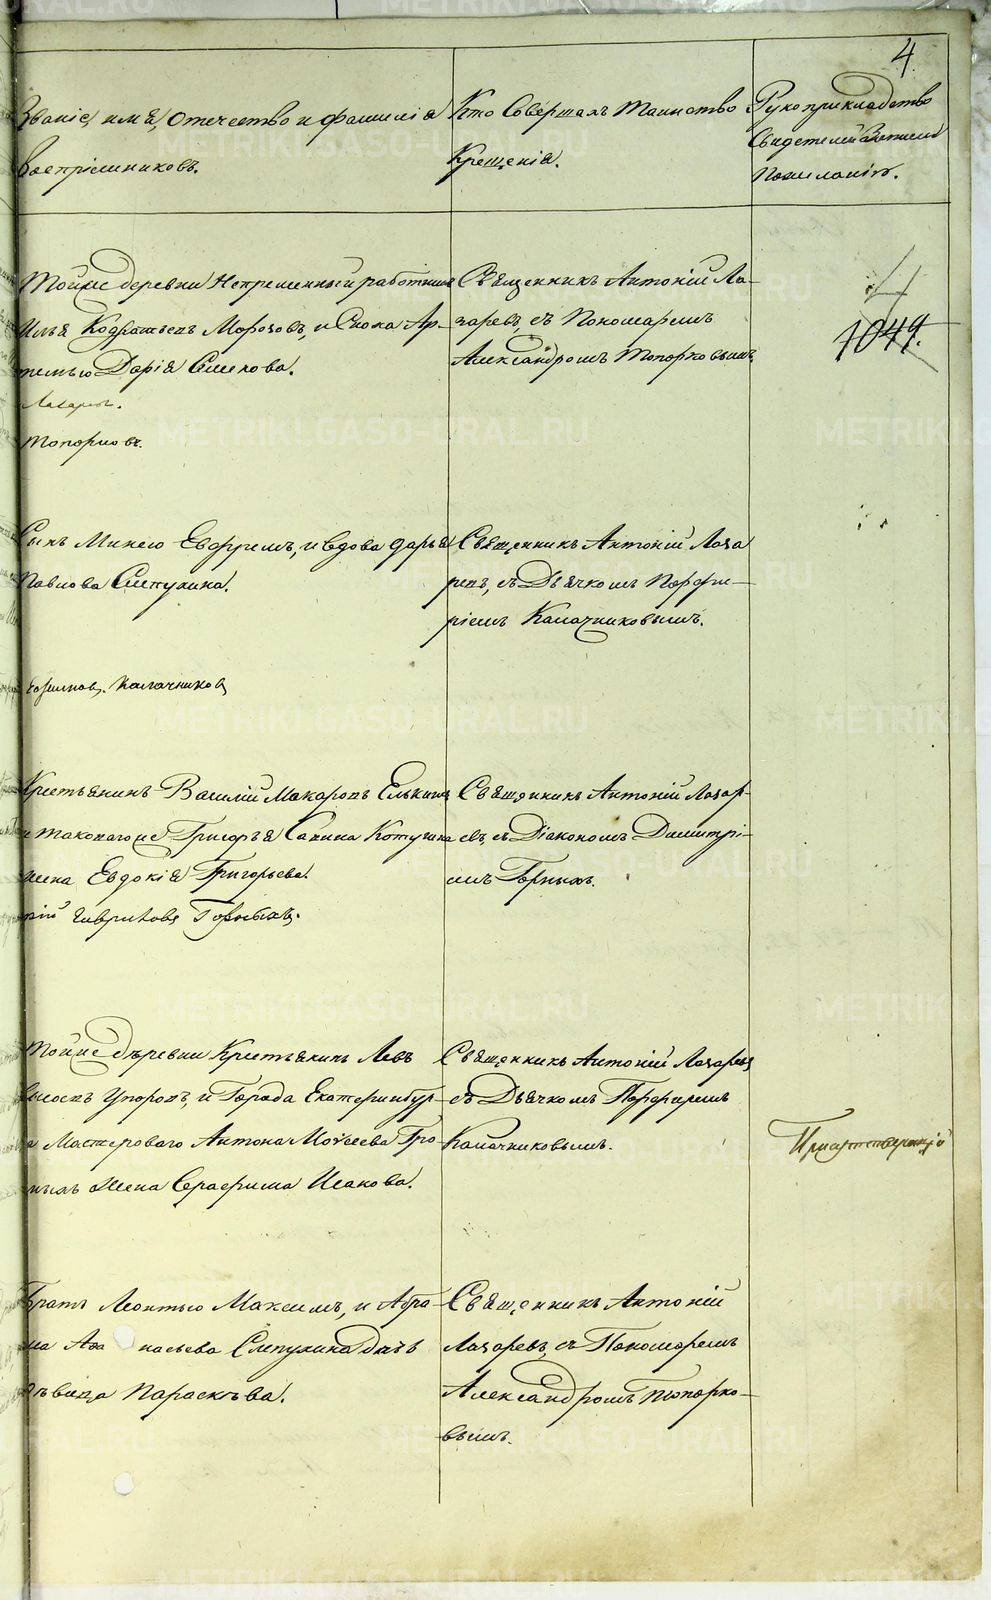 4.
Званіе, имя, отечество и фамилія
воспріемниковъ.
Кто Совершалъ Таинство
Крещенія.
Рукоприкладство
Свидетелей записи
По желанію.
Тойже деревни Непременный работникъ
Илья Кодратьевъ Морозовъ, и Сноха Ар-
темью Дарія Семенова.
Лазаревъ.
Топорковъ.
Священникъ Антоній Ла-
заревъ, съ Пономаремъ
Александромъ Топорковымъ
1049.
Сынъ Минею Евфимъ, и вдова Дарья
Павлова Слепухина.
Калачниковъ
Священникъ Антоній Лаза
ревъ, съ Дьячкомъ Порфи-
ріемъ Калачниковымъ.
Крестьянинъ Василій Макаровъ Елькинъ
и таковагоже Григорья Савина Котугина
жена Евдокія Григорьева.
рій Гавриловъ Горныхъ.
Священникъ Антоній Лазар-
евъ, съ Діакономъ Димитрі-
емъ Горныхъ.
Тойже деревни Крестьянинъ Левъ
Упоровъ, и Города Екатеринбур-
га Мастероваго Антона Моѵсеева Гро
ныхъ жена Серафима Исакова.
Священникъ Антоній Лазаревъ
съ Дьячкомъ Порфиремъ
Калачниковымъ.
Братъ Леонтью Максимъ, и Абра-
ма Афанасьева Слепухина дочь
девица Параскева.
Священникъ Антоній
Лазаревъ, съ Пономаремъ
Александромъ Топорко-
вымъ.
METRIKI.GASO-URAL.RU